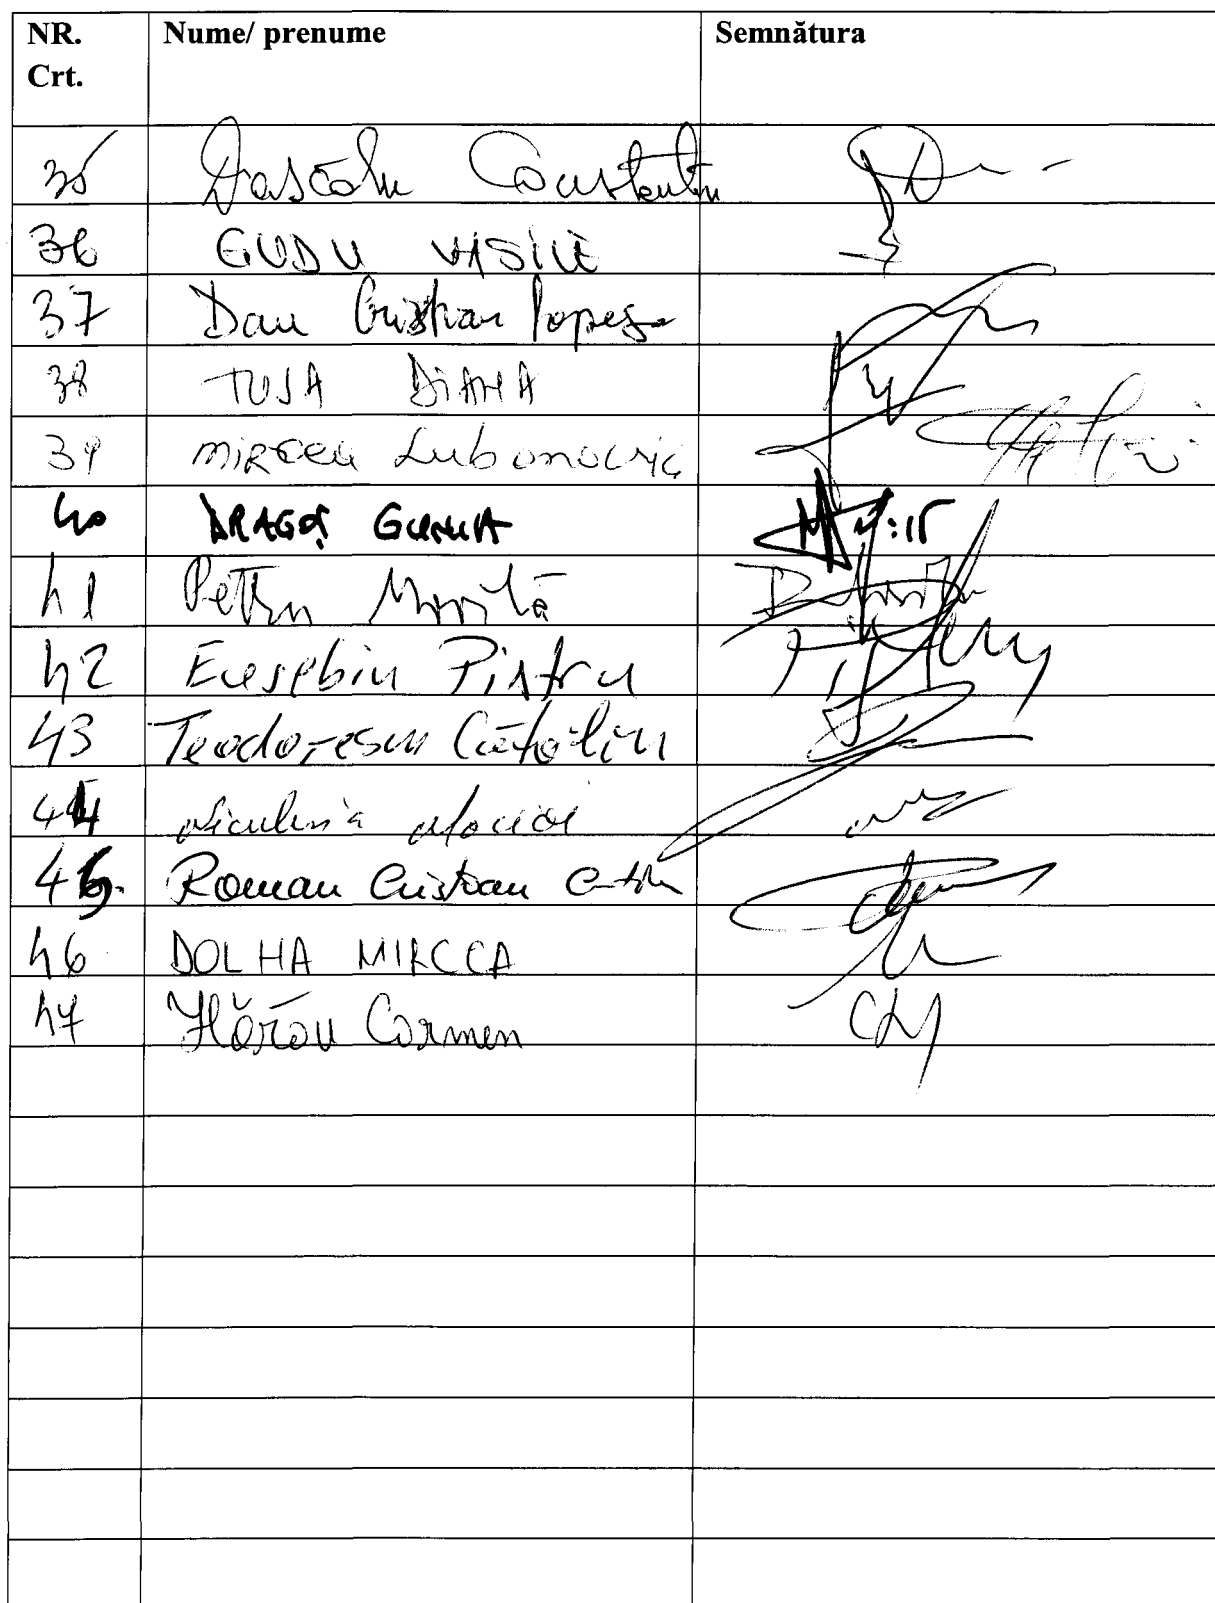 NR. Crt. Nume/ prenume Semnătura
35 Dascălu Constantin
36 GUDU VASILE
37 Dan Cristian Popescu
38 TUSA DIANA
39 MIRCEA Lubanovic
40 DRAGOȘ GUNIA
41 Petru Movilă
42 Eusebiu Pistru
43 Teodorescu Cătălin
44 Niculina
45. Roman Cristian
46 DOLHA MIRCEA
47 Hărău Carmen